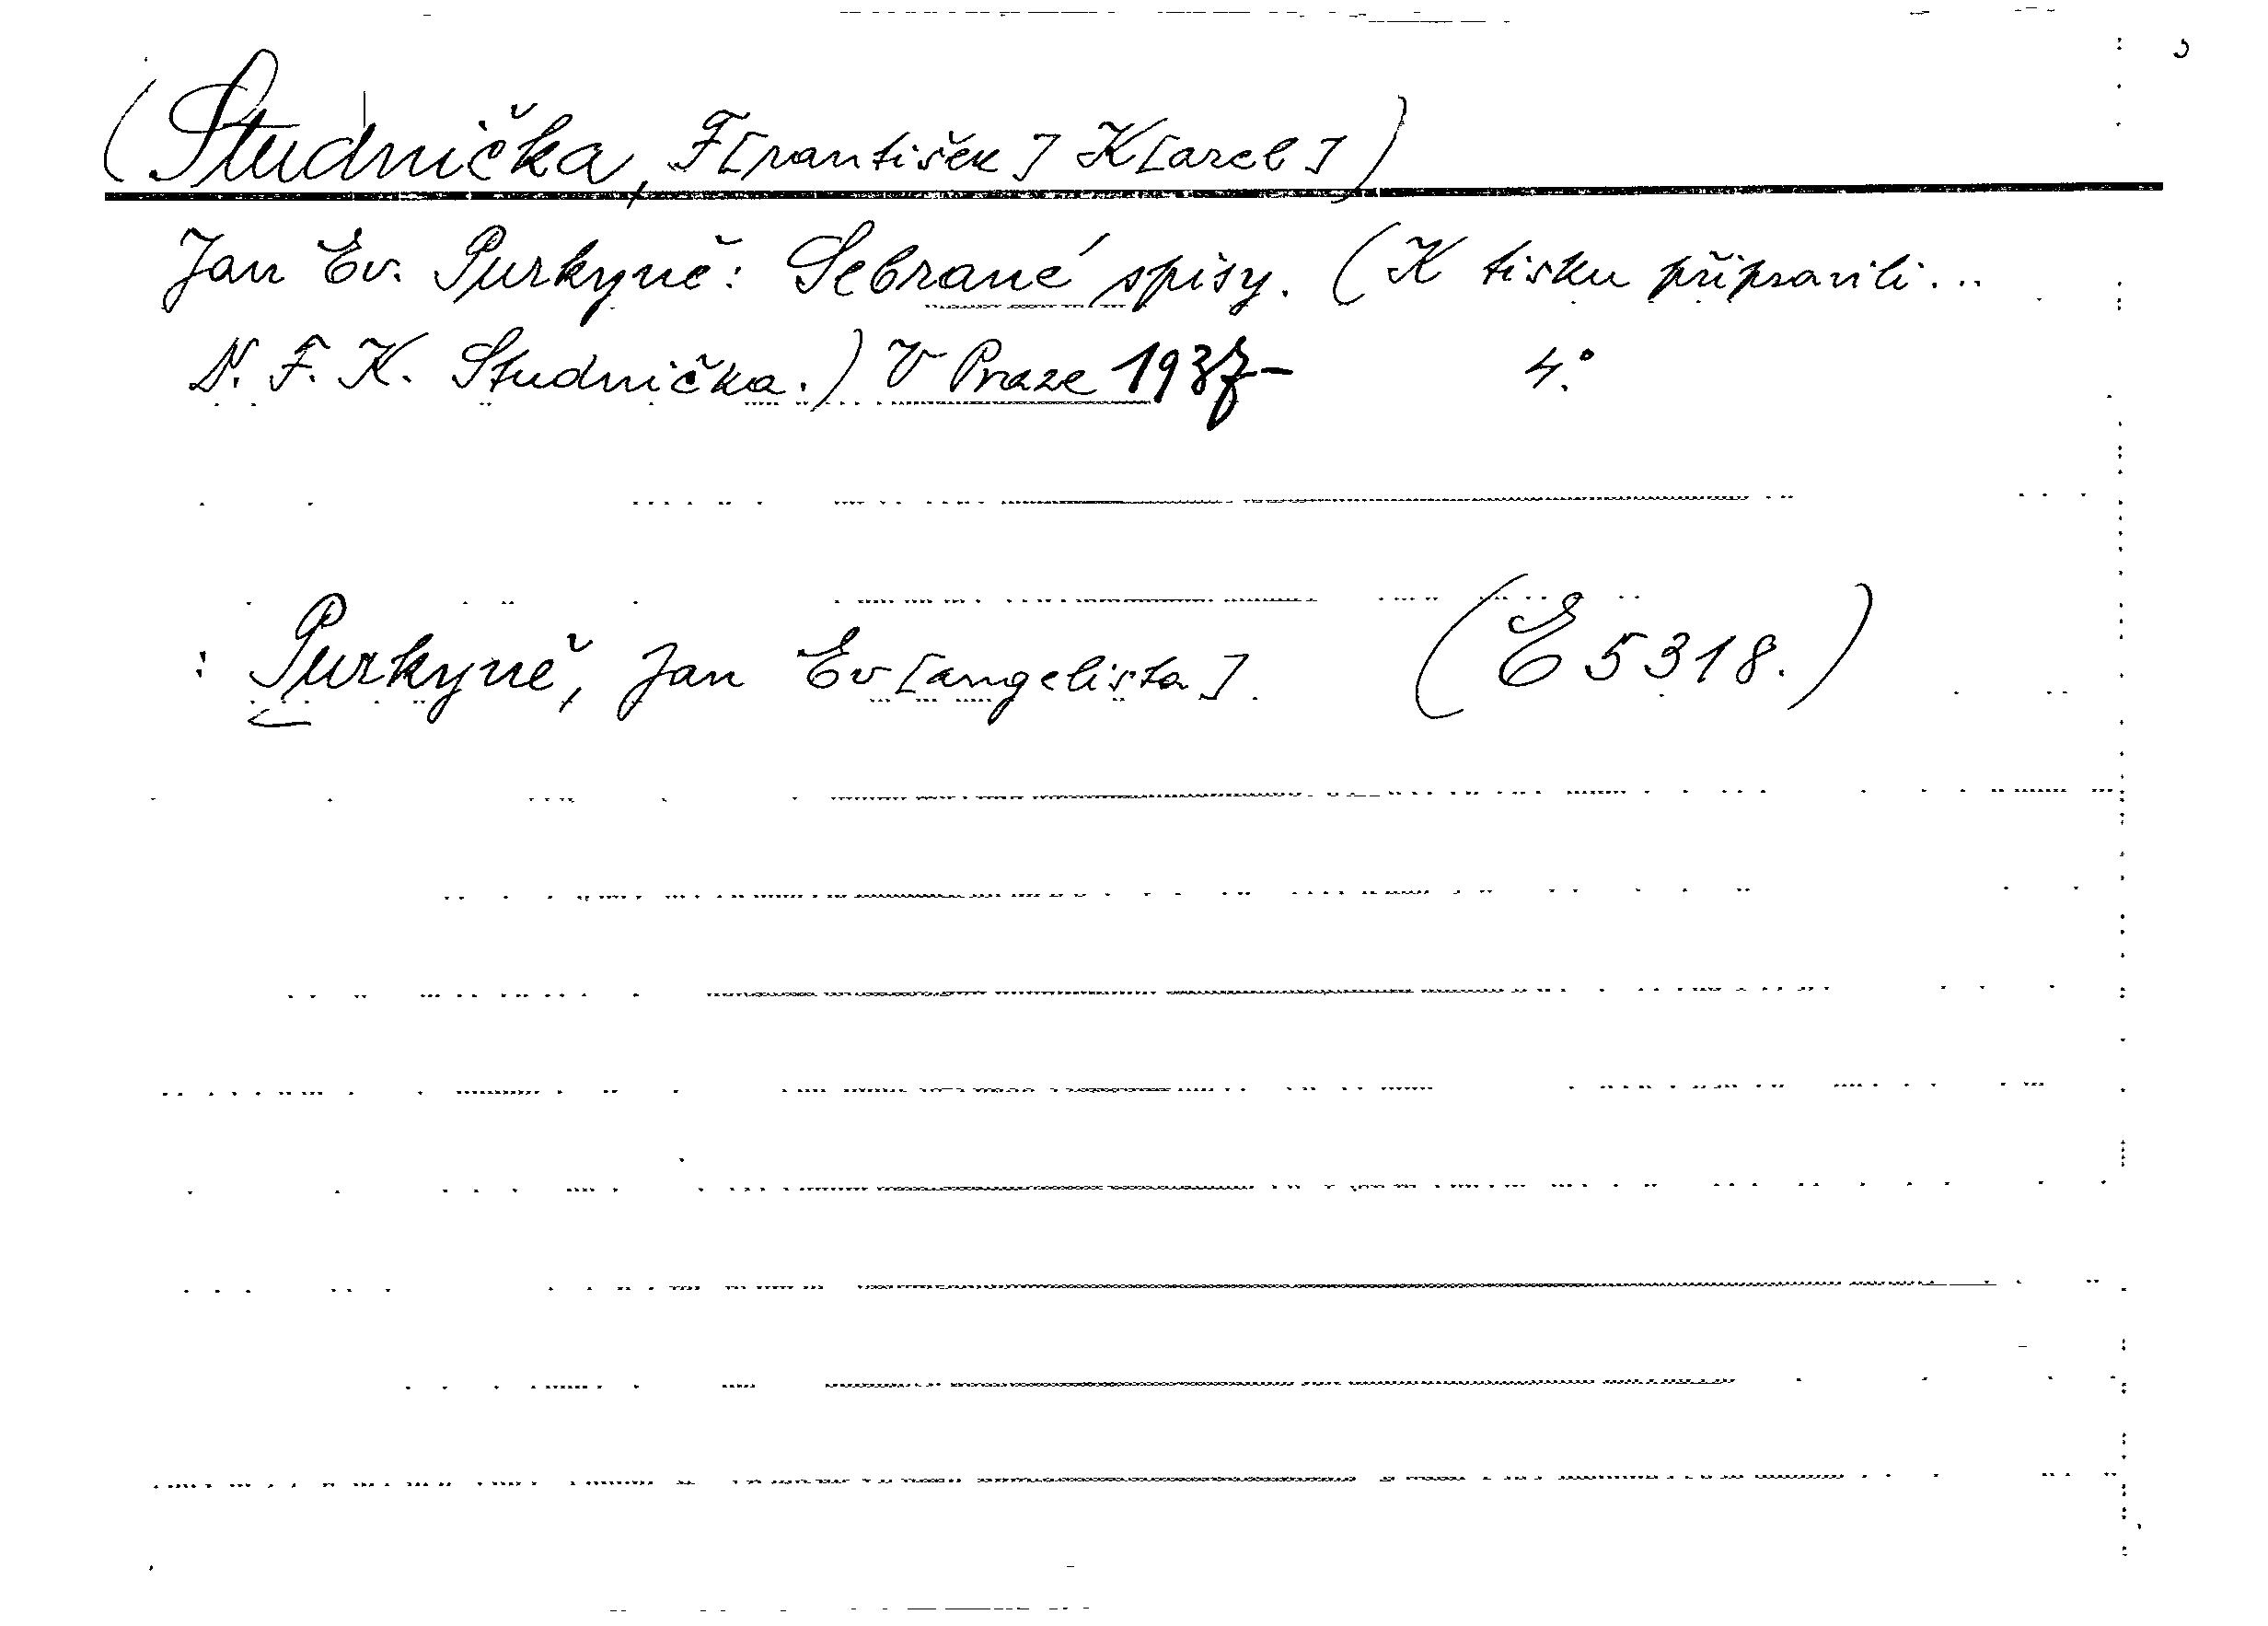 (Studnička, F[rantišek] K[arel])
Jan Ev. Purkyně: Sebrané spisy. (K tisku připravili...
F. K. Studnička.) V Praze 1937- 4.°
: Purkyně, Jan Ev[angelista]. (E 5318.)